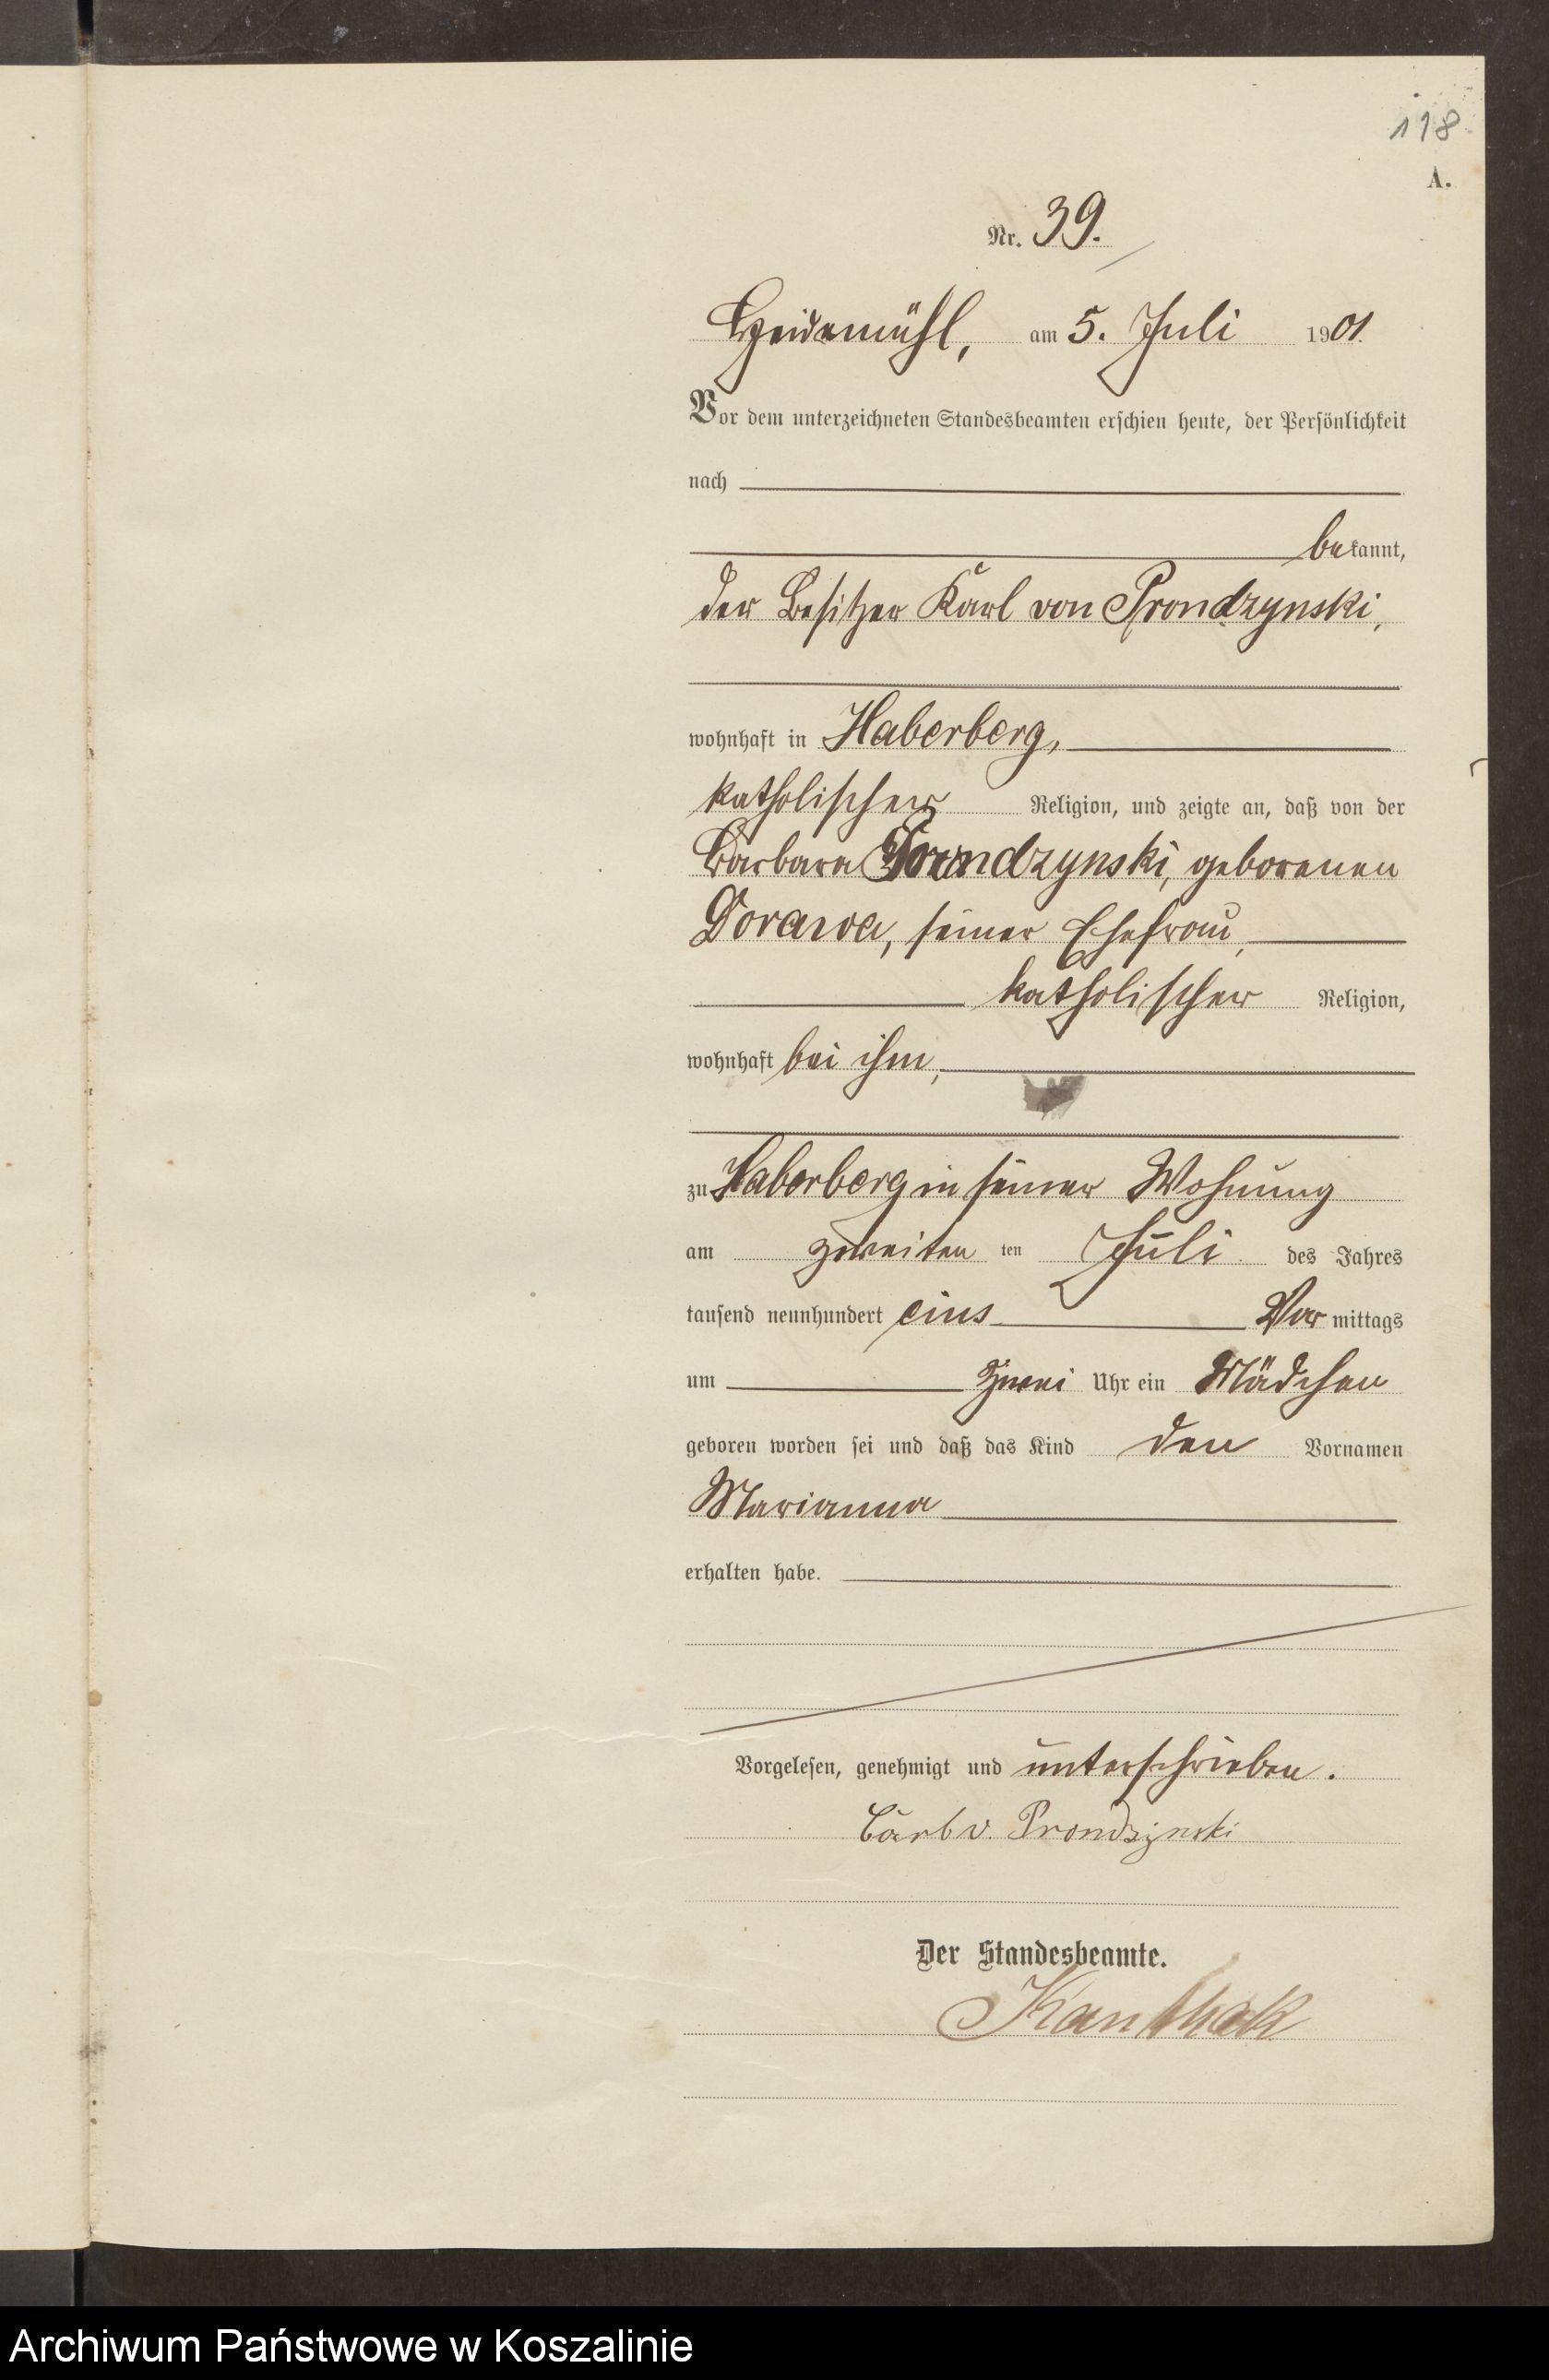 118
A.
Nr. 39.
Heidemühl, am 5. Juli 1901.
Vor dem unterzeichneten Standesbeamten erschien heute, der Persönlichkeit
nach
bekannt,
der Besitzer Karl von Prondzynski,
wohnhaft in Haberberg,
katholischer Religion, und zeigte an, daß von der
Barbara Prondzynski, geborenen
Dorawa, seiner Ehefrau,
katholischer Religion,
wohnhaft bei ihm,
zu Haberberg in seiner Wohnung
am zweiten ten Juli des Jahres
tausend neunhundert eins Vor mittags
um zwei Uhr ein Mädchen
geboren worden sei und daß das Kind den Vornamen
Marianna
erhalten habe.
Vorgelesen, genehmigt und unterschrieben.
Carl v. Prondzynski
Der Standesbeamte.
Kanthak
Archiwum Państwowe w Koszalinie